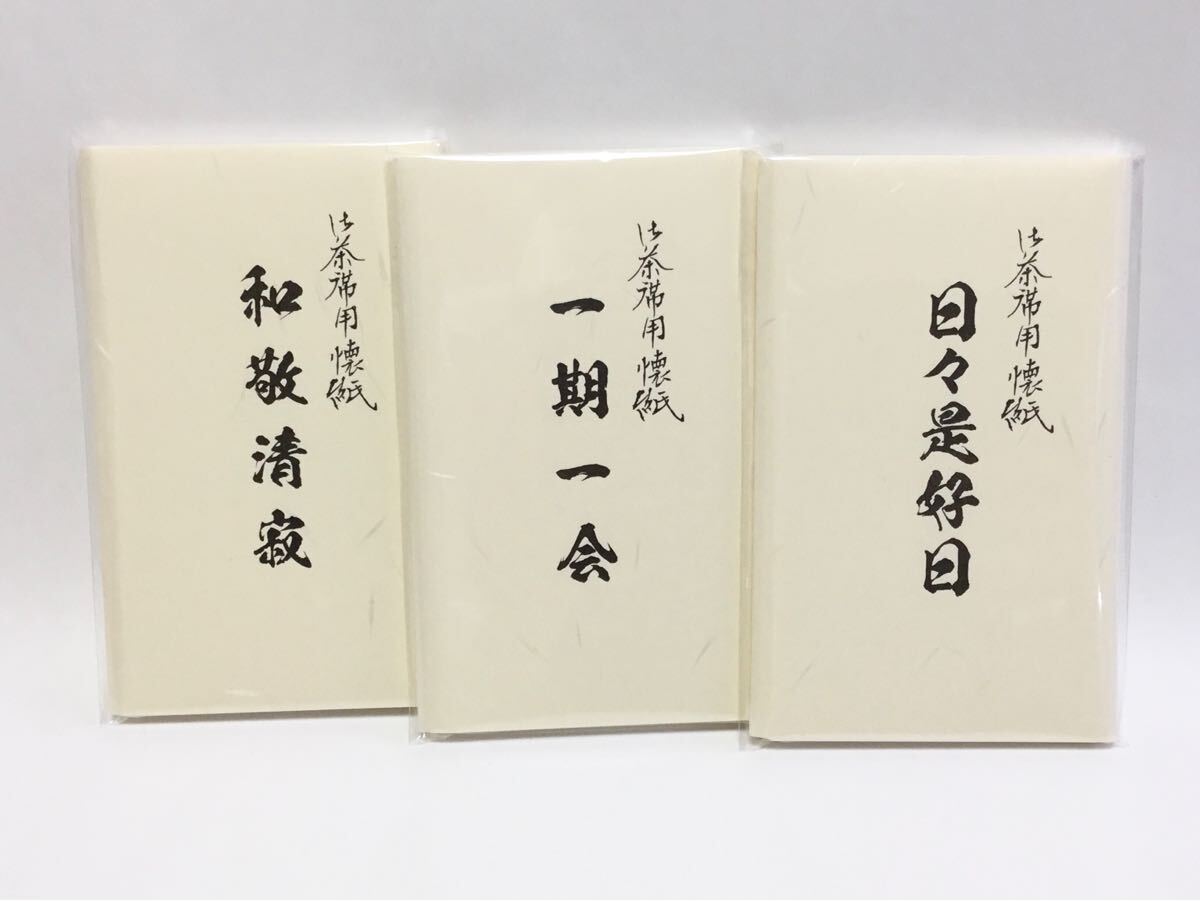 御茶席用懐紙
和敬清寂
御茶席用懐紙
一期一会
御茶席用懐紙
日々是好日